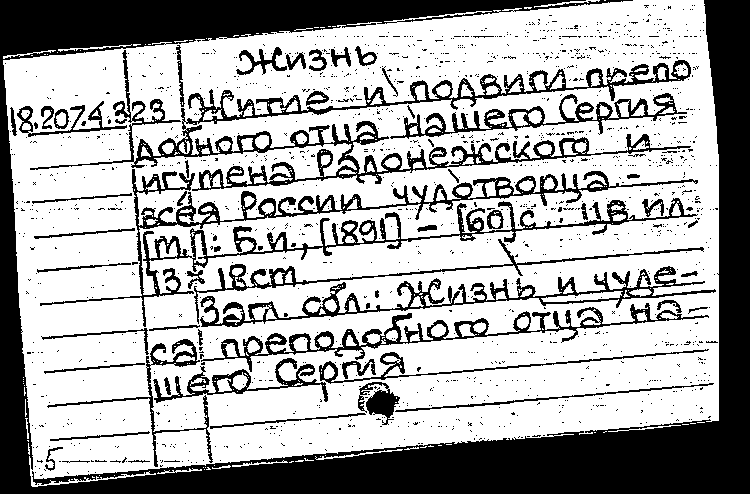 Жизнь
18.207.4.323 Житие и подвиги препо
добного отца нашего Сергия
игумена Радонежского и
всея России чудотворца. -
[М.]: Б.и., [1891] - [60]с.: цв.ил.
13 × 18см.
Загл. обл.: Жизнь и чуде-
са преподобного отца на-
шего Сергия.
5